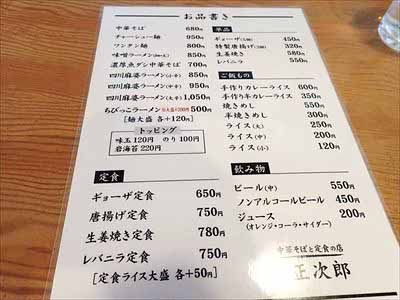 お品書き
中華そば 680円
チャーシュー麺 950円
ワンタン麺 800円
味噌ラーメン 850円
濃厚魚ダシ中華そば 700円
四川麻婆ラーメン(小辛) 850円
四川麻婆ラーメン(中辛) 950円
四川麻婆ラーメン(大辛) 1,050円
ちびっこラーメン 500円
[麺大盛 各+120円]
トッピング
味玉120円 のり100円
岩海苔220円
定食
ギョーザ定食 650円
唐揚げ定食 750円
生姜焼き定食 780円
レバニラ定食 750円
[定食ライス大盛 各+50円]
単品
ギョーザ 450円
特製唐揚げ 320円
生姜焼き 580円
レバニラ 550円
ご飯もの
手作りカレーライス 600円
手作り半カレーライス 350円
焼きめし 550円
半焼きめし 300円
ライス(大) 250円
ライス(中) 200円
ライス(小) 120円
飲み物
ビール(中) 550円
ノンアルコールビール 450円
ジュース 200円
(オレンジ・コーラ・サイダー)
中華そばと定食の店
正次郎